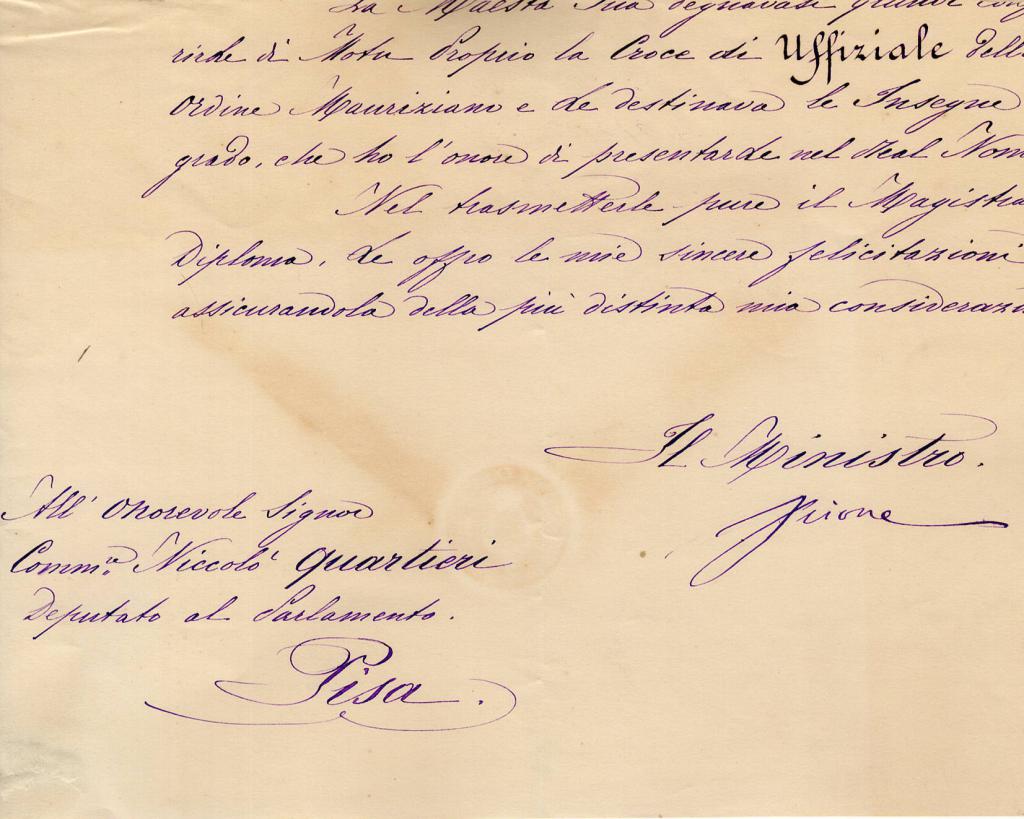 La Maestà Sua degnavasi quindi
rirle di Motu Proprio la Croce di Uffiziale dell
Ordine Mauriziano e Le destinava le Insegne
grado, che ho l'onore di presentarLe nel Real Nom
Nel trasmetterle pure il Magistra
Diploma, Le offro le mie sincere felicitazioni
assicurandola della più distinta mia considerazi
Il Ministro.
Visone
All' Onorevole Signor
Comm.re Niccolò Quartieri
Deputato al Parlamento.
Pisa.